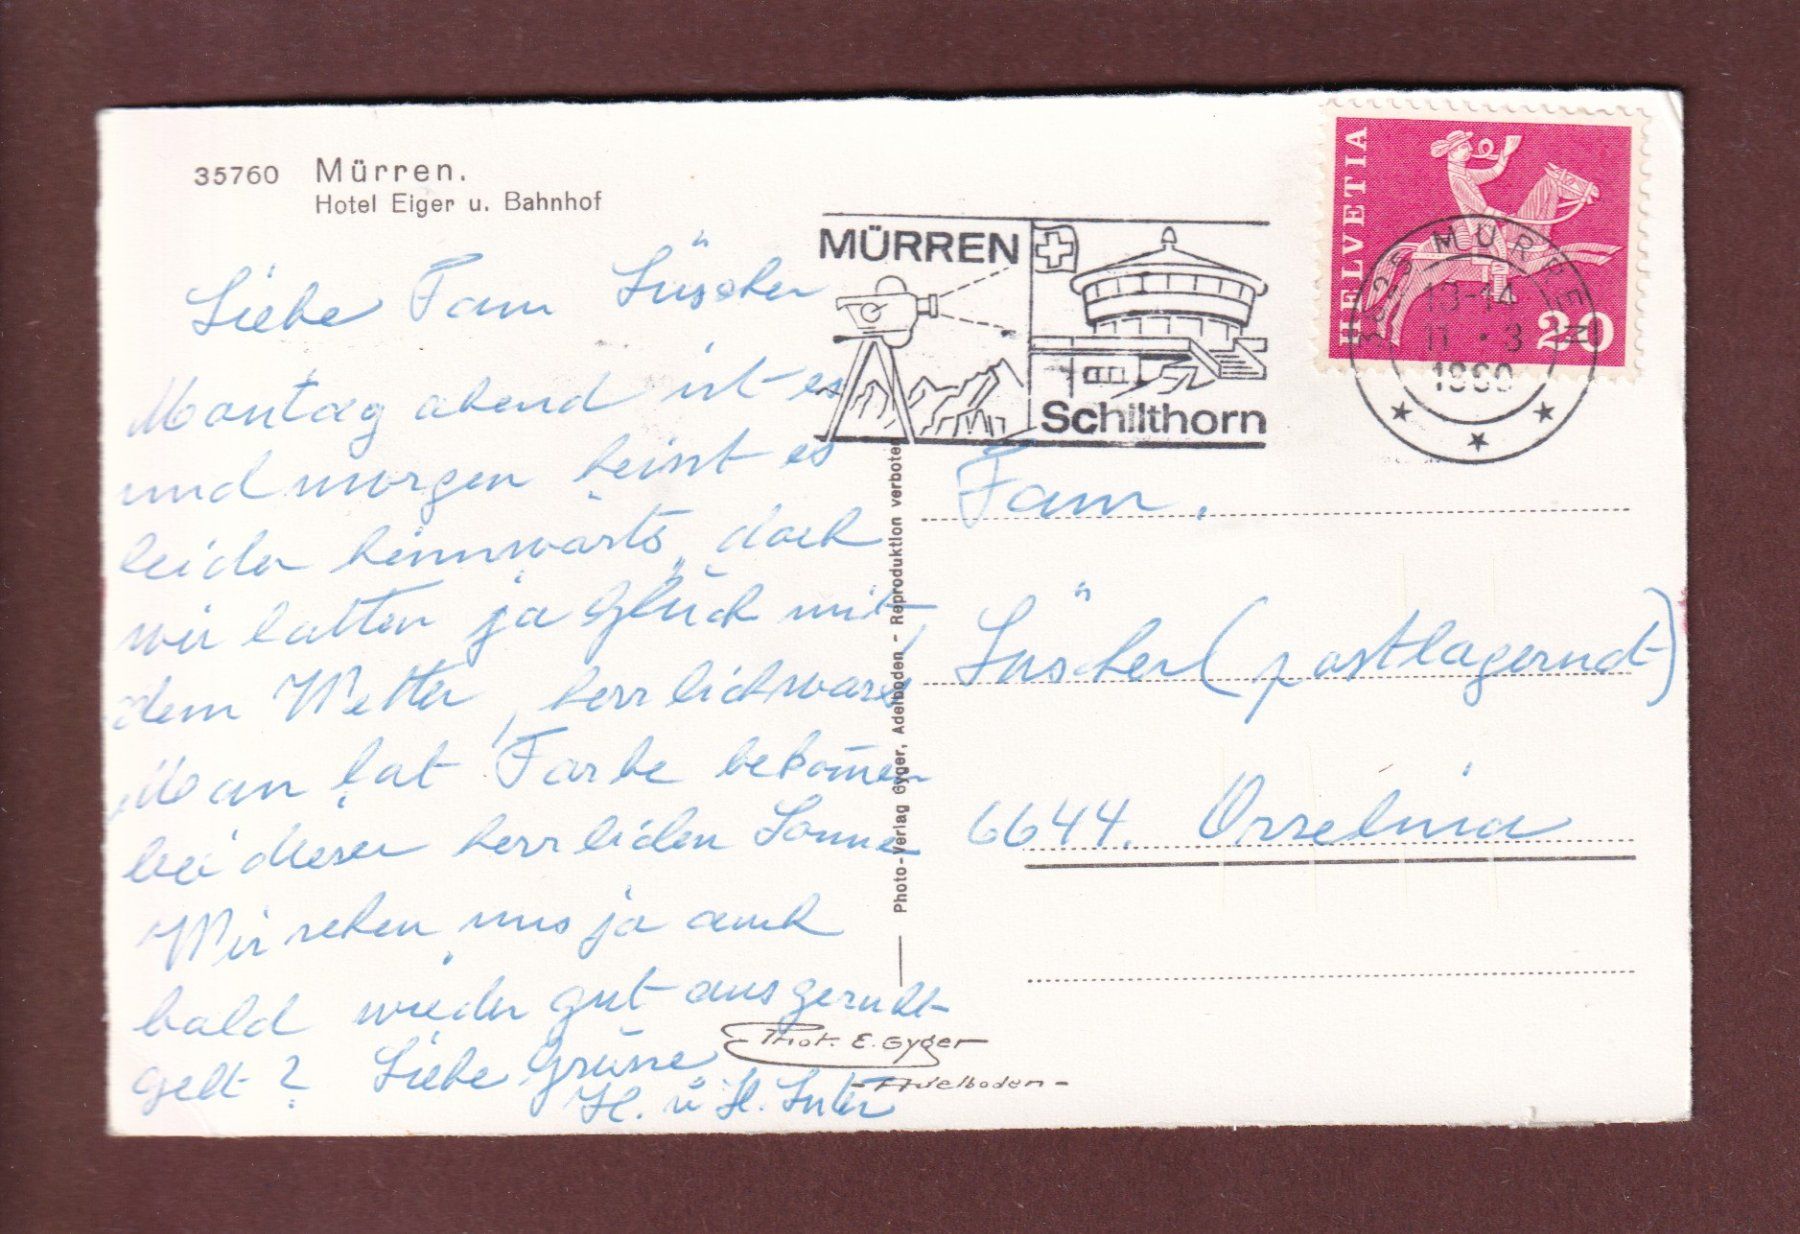 35760 Mürren.
Hotel Eiger u. Bahnhof
Liebe Fam Lüscher
Montag abend ist es
und morgen heisst es
leider heimwärts, doch
wir hatten ja Glück mit
dem Wetter, herrlich wars
Man hat Farbe bekom̄en
bei dieser herrlichen Sonne
Wir sehen uns ja auch
bald wieder gut ausgeruht
gelt? Liebe Grüsse
H. u H. Suter
MÜRREN
Schilthorn
HELVETIA
20
3825 MÜRREN
13-14
11.·3
1969
Fam.
Lüscher (postlagernd)
6644. Orselina
Photo-Verlag Gyger, Adelboden - Reproduktion verboten
Phot. E. Gyger
- Adelboden -